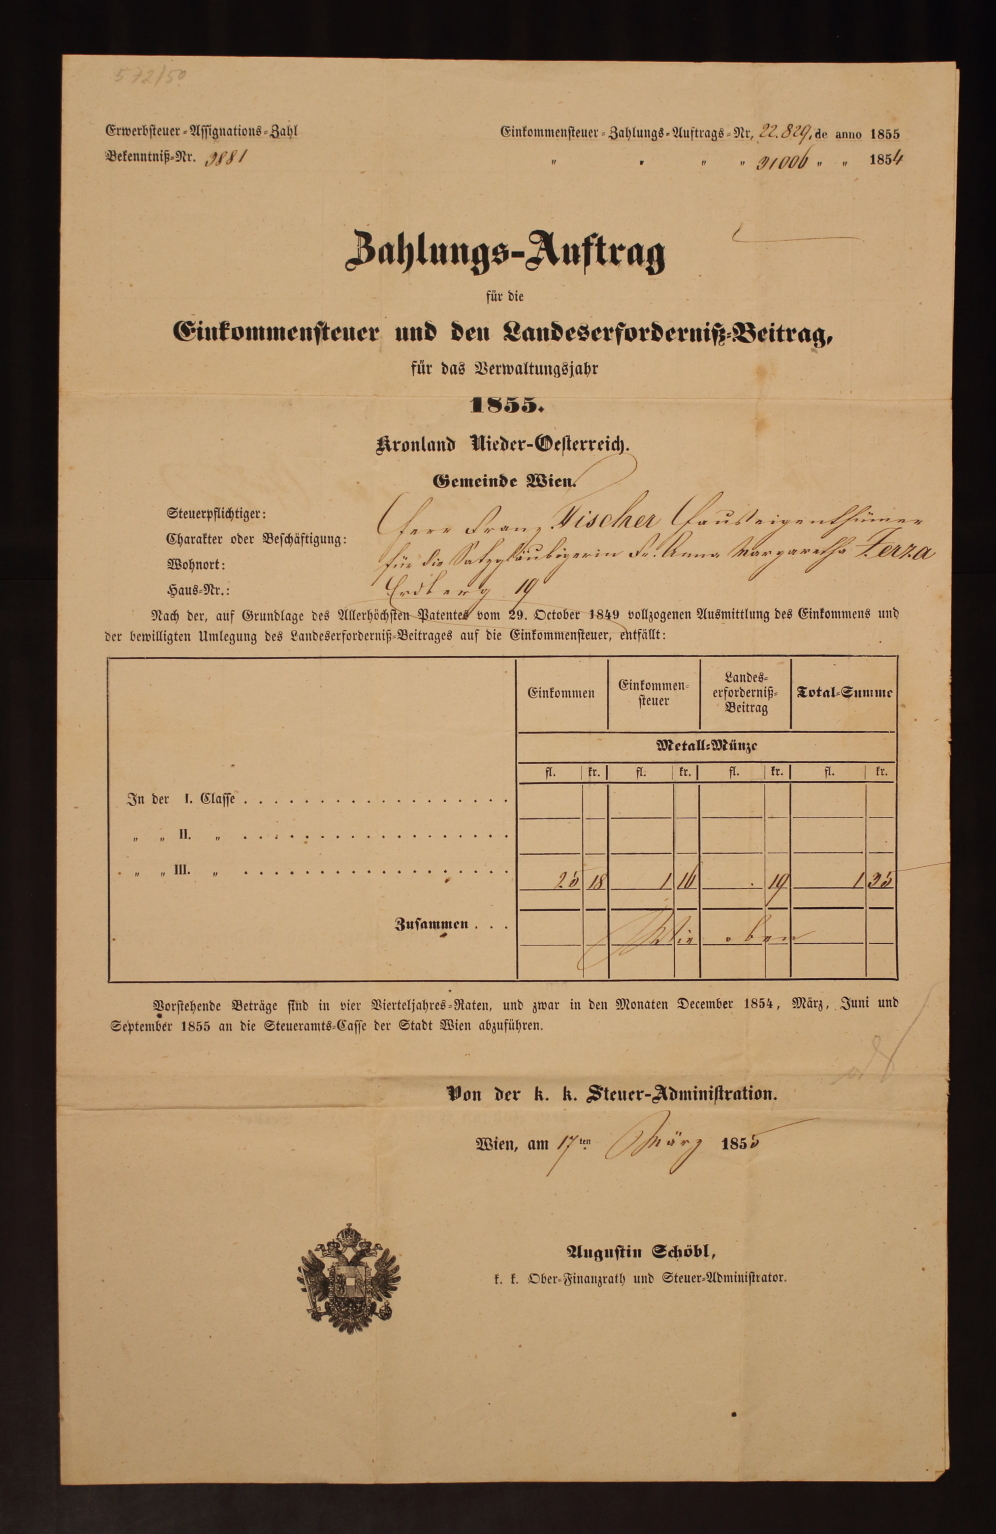 572/50
Erwerbsteuer-Assignations-Zahl
Einkommensteuer-Zahlungs-Auftrags-Nr. 22.829, de anno 1855
Bekenntniß-Nr. 3881
" " " " 31006 " " 1854
Zahlungs-Auftrag
für die
Einkommensteuer und den Landeserforderniß-Beitrag,
für das Verwaltungsjahr
1855.
Kronland Nieder-Oesterreich.
Gemeinde Wien.
Steuerpflichtiger: Herr Franz Fischer Hauseigenthümer
Charakter oder Beschäftigung: für die Satzgläubigerin Fr. Anna Margaretha Zerza
Wohnort: Erdberg 19
Haus-Nr.:
Nach der, auf Grundlage des Allerhöchsten Patentes vom 29. October 1849 vollzogenen Ausmittlung des Einkommens und
der bewilligten Umlegung des Landeserforderniß-Beitrages auf die Einkommensteuer, entfällt:
Einkommen Einkommen-steuer Landes-erforderniß-Beitrag Total-Summe
Metall-Münze
fl. kr. fl. kr. fl. kr. fl. kr.
In der I. Classe . . . . . . . . . . . . . . . . .
" " II. " . . . . . . . . . . . . . . . . .
" " III. " . . . . . . . . . . . . . . . . . 25 18 1 16 . 19 1 35
Zusammen . . . Wie oben
Vorstehende Beträge sind in vier Vierteljahres-Raten, und zwar in den Monaten December 1854, März, Juni und
September 1855 an die Steueramts-Casse der Stadt Wien abzuführen.
Von der k. k. Steuer-Administration.
Wien, am 17ten März 1855
Augustin Schöbl,
k. k. Ober-Finanzrath und Steuer-Administrator.